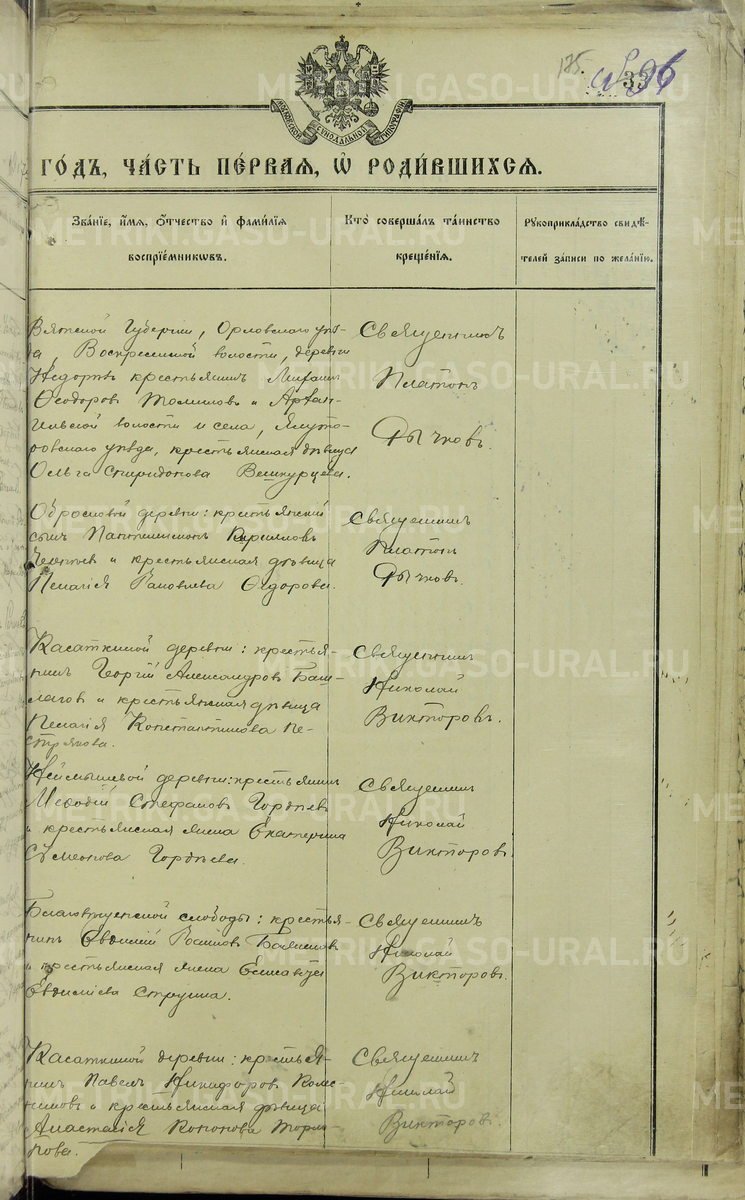 175.
МОСКОВСКОЙ СѴНОДАЛЬНОЙ ТИПОГРАФІИ
ГО́ДЪ, ЧА́СТЬ ПЕ́РВАЯ, Ѡ҆ РОДИ́ВШИХСЯ.
Зва́нїе, и҆́мя, ѻ҆́тчество и҆ фами́лїя
воспрїе́мниковъ.
Кто̀ соверша́лъ та́инство
креще́нїя.
Рꙋкоприкла́дство свидѣ́-
телей за́писи по жела́нїю.
Вятской Губерніи, Орловскаго уѣз-
да, Воскресенской волости, деревни
крестьянинъ Михаилъ
Ѳеодоровъ и Архан-
гельской волости и села, Ялуто-
ровскаго уѣзда, крестьянская дѣвица
Ольга Спиридонова Вешкурцева.
Священникъ
Платонъ
Дьячковъ.
деревни: крестьянскій
сынъ Пантелеимонъ Кирилловъ
и крестьянская дѣвица
Пелагія Ѳедорова.
Священникъ
Платонъ
Дьячковъ.
Касаткиной деревни: крестья-
нинъ Георгій Александровъ Баш-
лаковъ и крестьянская дѣвица
Пелагія Константинова Пе-
стрякова.
Священникъ
Николай
Викторовъ.
деревни: крестьянинъ
Меѳодій Стефановъ Гордѣевъ
и крестьянская жена Екатерина
Сѵмеонова Гордѣева.
Священникъ
Николай
Викторовъ.
слободы: крестья-
нинъ Евдокимъ
и крестьянская жена Елисавета
Священникъ
Николай
Викторовъ.
Касаткиной деревни: крестья-
нинъ Павелъ Никифоровъ Колес-
никовъ и крестьянская дѣвица
Анастасія Кононова
Священникъ
Николай
Викторовъ.
METRIKI.GASO-URAL.RU